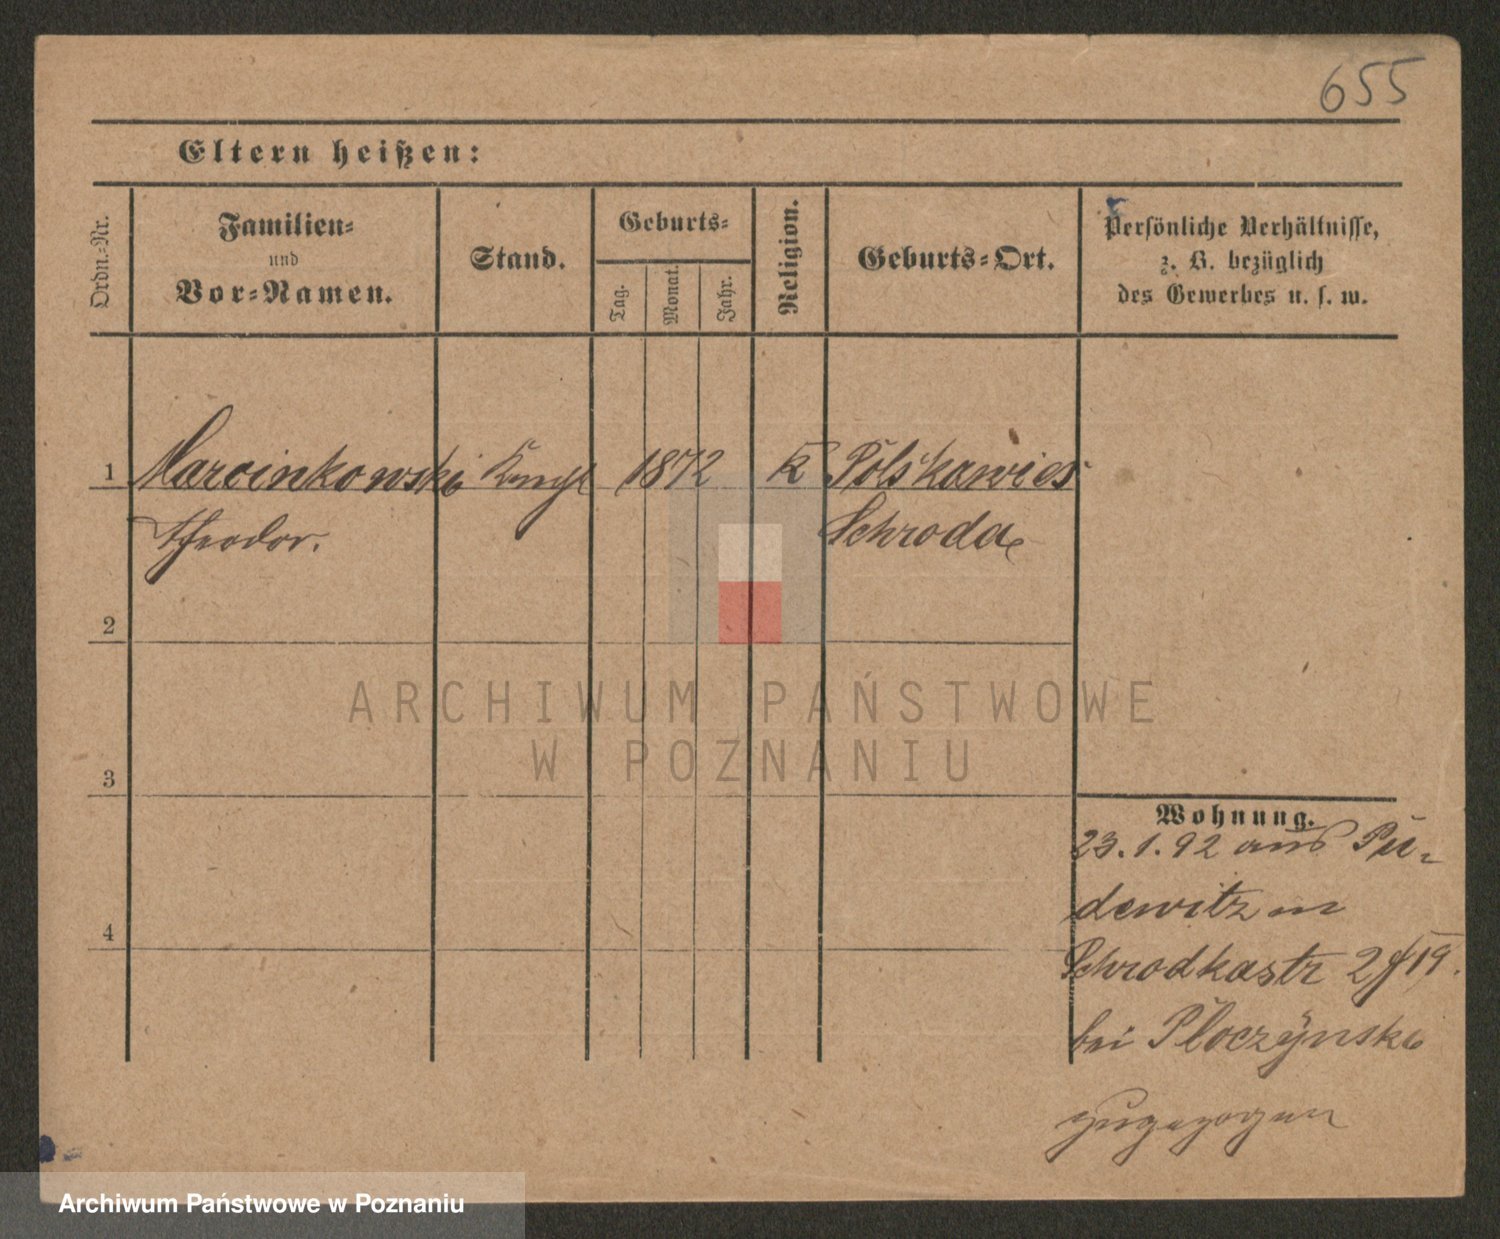 655
Eltern heißen:
Ordn.-Nr.
Familien-
und
Vor-Namen.
Stand.
Geburts-
Tag.
Monat.
Jahr.
Religion.
Geburts-Ort.
Persönliche Verhältnisse,
z. B. bezüglich
des Gewerbes u. s. w.
1 Marcinkowski Knecht 1872 K Polskawies
Theodor. Schroda
2
3
4
ARCHIWUM PAŃSTWOWE
W POZNANIU
Wohnung.
23.1.92 aus Pu-
dewitz in
Schrodkastr 2/19.
bei Ploczynska
zugezogen
Archiwum Państwowe w Poznaniu